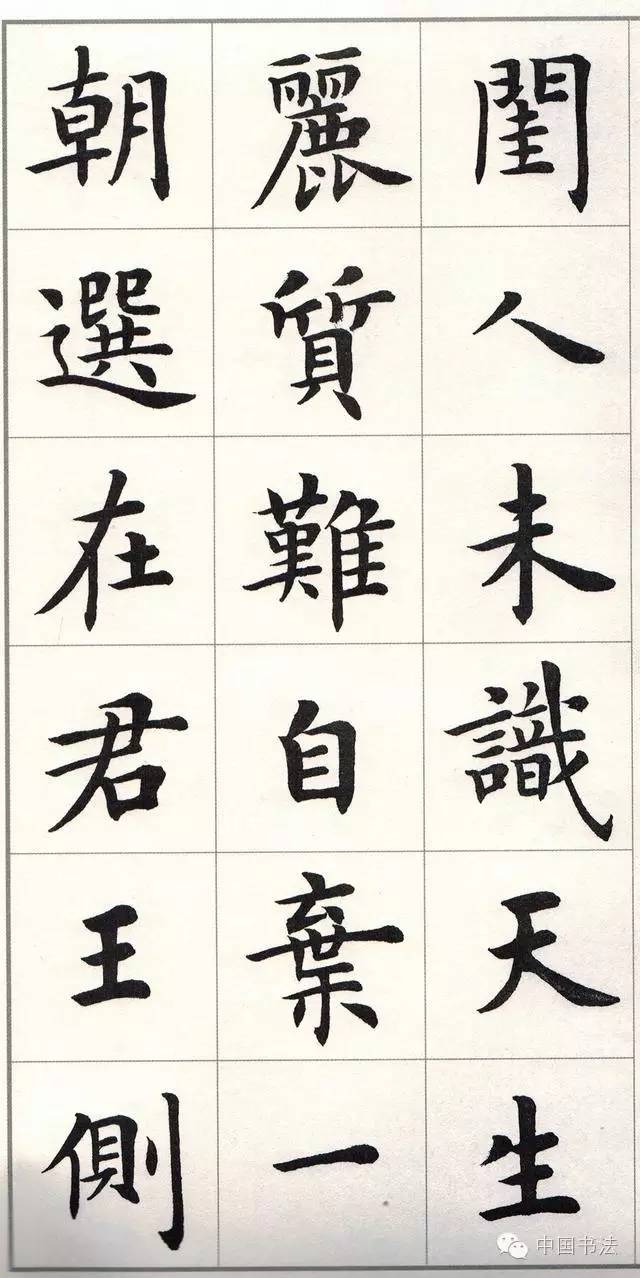 閨人未識天生
麗質難自棄一
朝選在君王側
中国书法